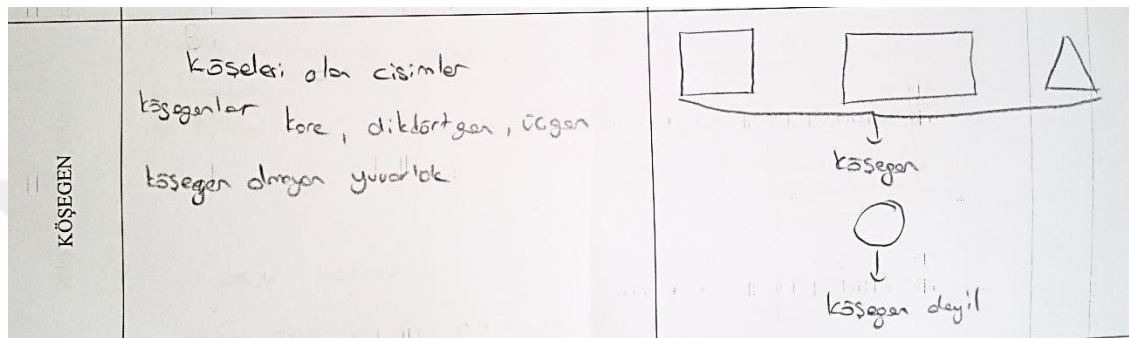 KÖŞEGEN
köşeleri olan cisimler
köşegenler kare, dikdörtgen, üçgen
köşegen olmayan yuvarlak
köşegen
köşegen deyil